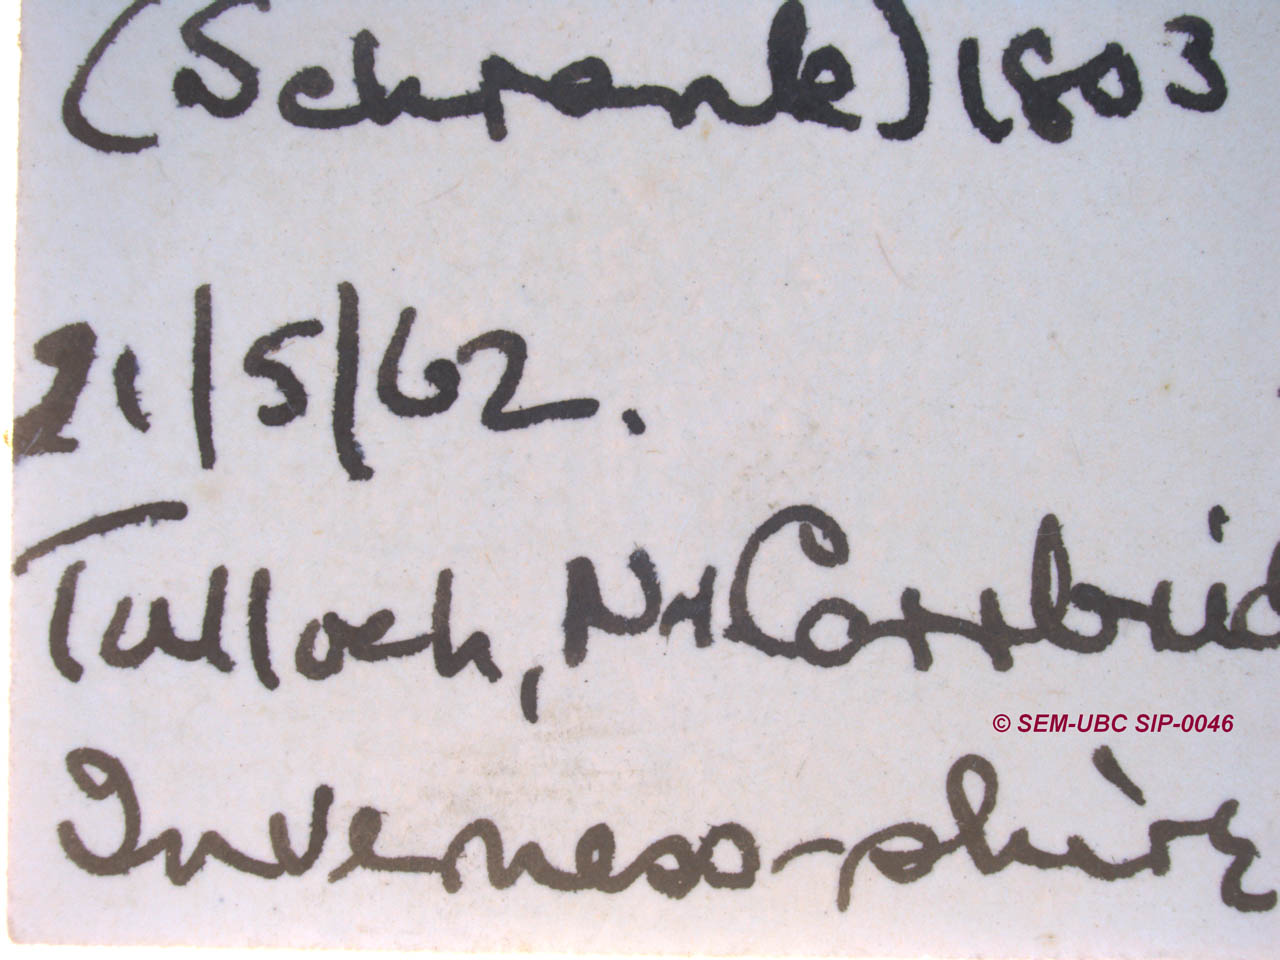 (Schrank) 1803
21/5/62.
Tulloch, Nr Carrbrid
© SEM-UBC SIP-0046
Inverness-shire